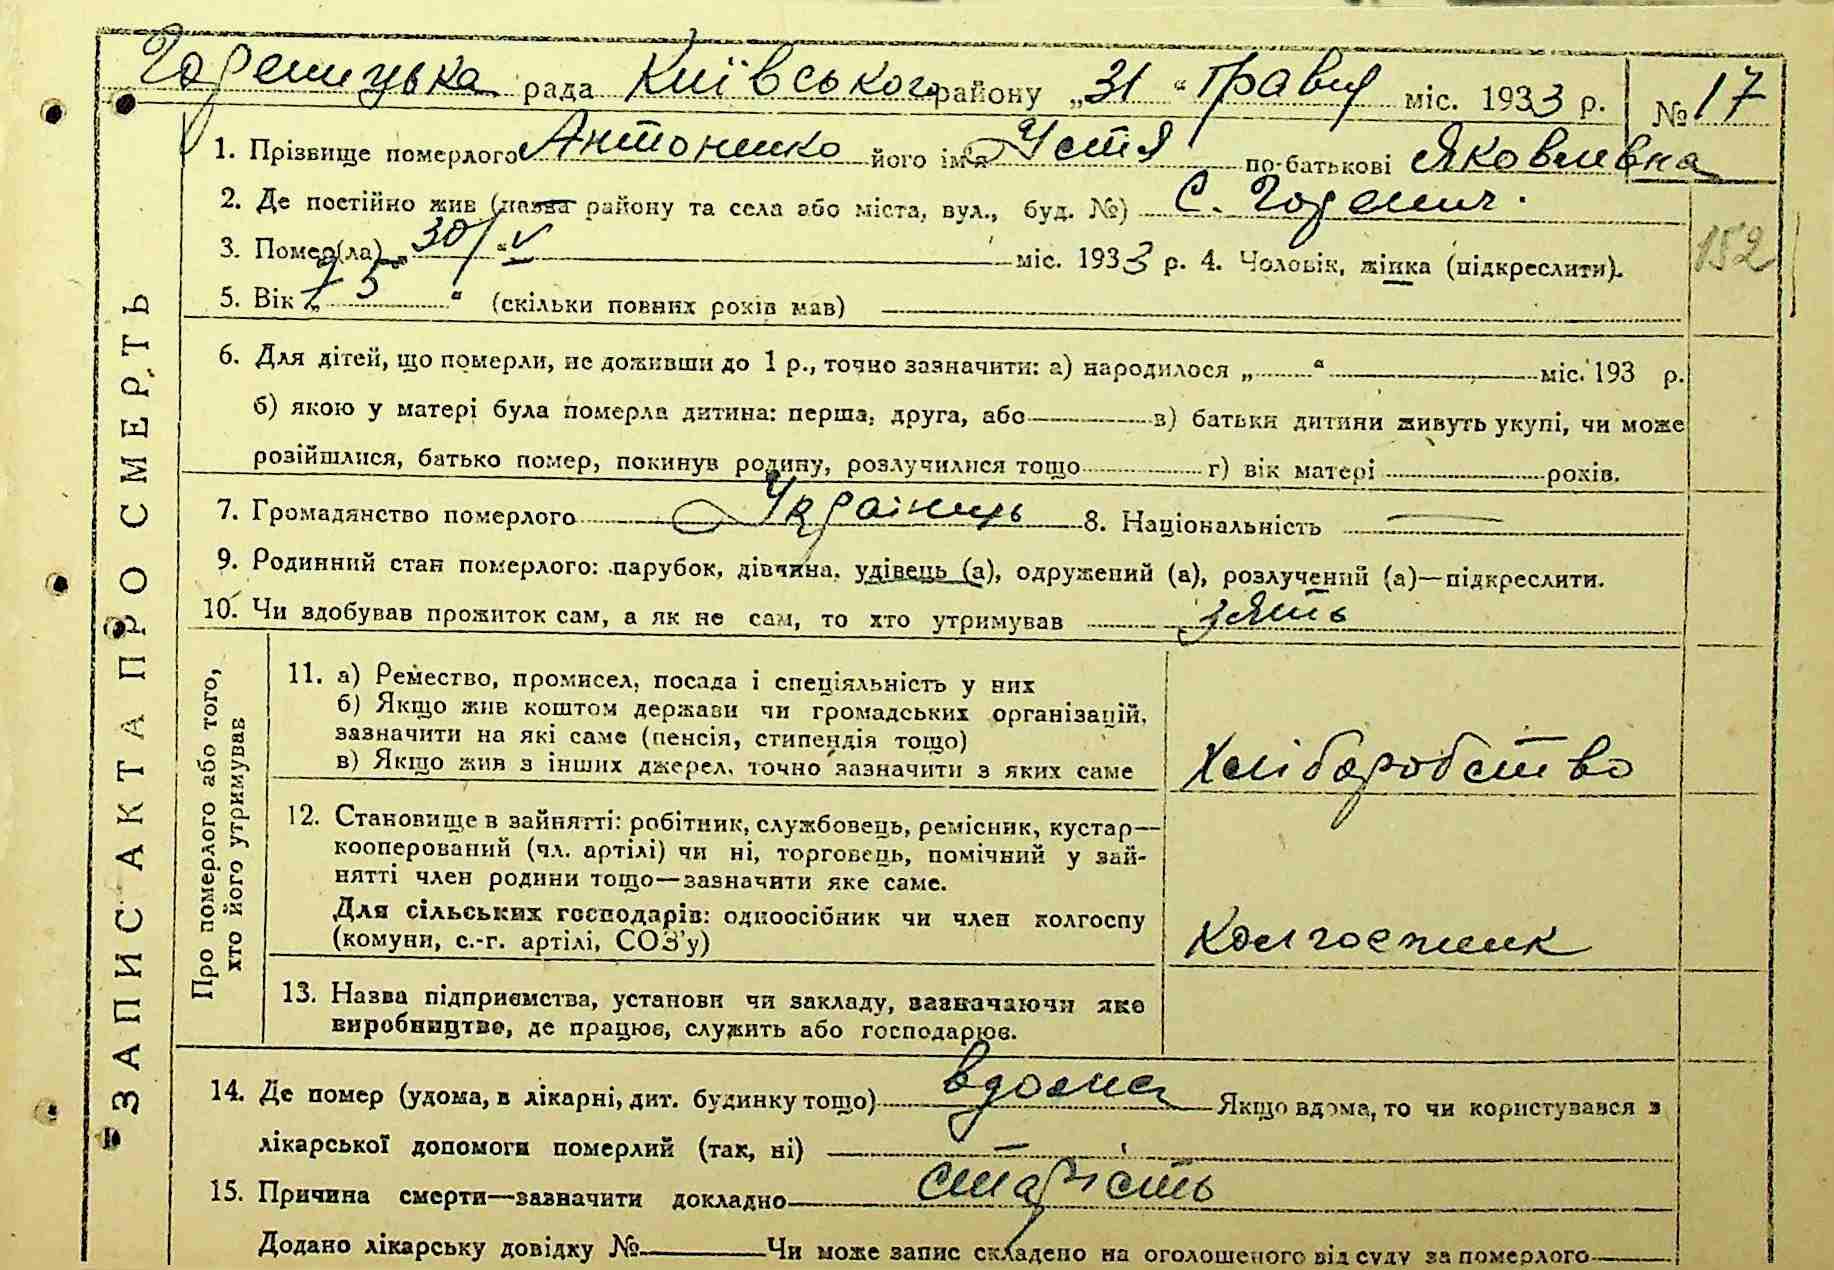 Гореницька рада Київського району „31“ Травня міс. 1933 р. № 17
1. Прізвище померлого Антоненко його ім'я Устя по-батькові Яковлевна
2. Де постійно жив (назва району та села або міста, вул., буд. №) С. Горенич.
3. Помер(ла) „30/“ V міс. 1933 р. 4. Чоловік, жінка (підкреслити).
152
5. Вік „75“ (скільки повних років мав)
6. Для дітей, що померли, не доживши до 1 р., точно зазначити: а) народилося „ “ міс. 193 р.
б) якою у матері була померла дитина: перша, друга, або в) батьки дитини живуть укупі, чи може
розійшлися, батько помер, покинув родину, розлучилися тощо г) вік матері років.
7. Громадянство померлого Українець 8. Національність —
9. Родинний стан померлого: парубок, дівчина, удівець (а), одружений (а), розлучений (а)—підкреслити.
10. Чи здобував прожиток сам, а як не сам, то хто утримував зять
ЗАПИС АКТА ПРО СМЕРТЬ
Про померлого або того,
хто його утримував
11. а) Ремество, промисел, посада і спеціяльність у них
б) Якщо жив коштом держави чи громадських організацій,
зазначити на які саме (пенсія, стипендія тощо)
в) Якщо жив з інших джерел, точно зазначити з яких саме
Хліборобство
12. Становище в зайнятті: робітник, службовець, ремісник, кустар—
кооперований (чл. артілі) чи ні, торговець, помічний у зай-
нятті член родини тощо—зазначити яке саме.
Для сільських господарів: одноосібник чи член колгоспу
(комуни, с.-г. артілі, СОЗ'у)
Колгоспник
13. Назва підприємства, установи чи закладу, зазначаючи яке
виробництво, де працює, служить або господарює.
14. Де помер (удома, в лікарні, дит. будинку тощо) вдома Якщо вдома, то чи користувався з
лікарської допомоги померлий (так, ні)
15. Причина смерти—зазначити докладно старість
Додано лікарську довідку № Чи може запис складено на оголошеного від суду за померлого